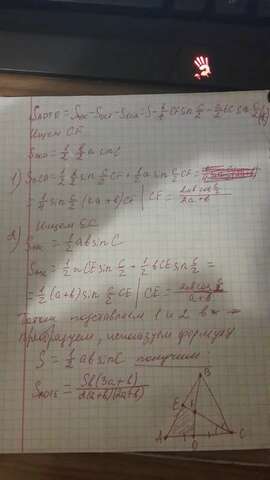 S_ADFE = S_ABC - S_DCF - S_CEA = S - 1/2 b/2 CF sin C/2 - 1/2 b CE sin C/2
Ищем CF
S_BCD = 1/2 b/2 a sin C
1) S_BCD = 1/2 b/2 sin C/2 CF + 1/2 a sin C/2 CF =
= 1/4 sin C/2 (2a+b) CF | CF = 2ab cos C/2 / 2a+b
2) Ищем EC
S_ABC = 1/2 ab sin C
S_ABC = 1/2 a CE sin C/2 + 1/2 b CE sin C/2 =
= 1/2 (a+b) sin C/2 CE | CE = 2ab cos C/2 / a+b
подставляем 1 и 2 в *
Преобразуем, используем формулу
S = 1/2 ab sin C получим
S_ADFE = Sb(3a+b) / 2(a+b)(2a+b)
B
E
A
D
C